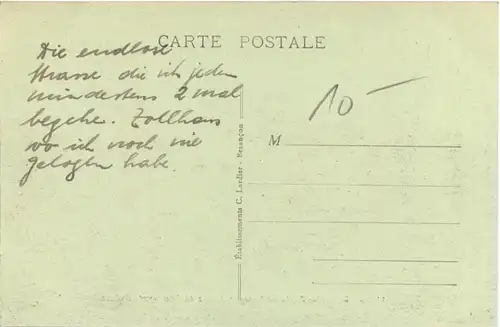 CARTE POSTALE
Die endlose
Strasse die ich jeden
mindestens 2 mal
begehe. Zollhaus
wo ich noch nie
gelogen habe.
10-
M
Établissements C. Lardier - Besançon